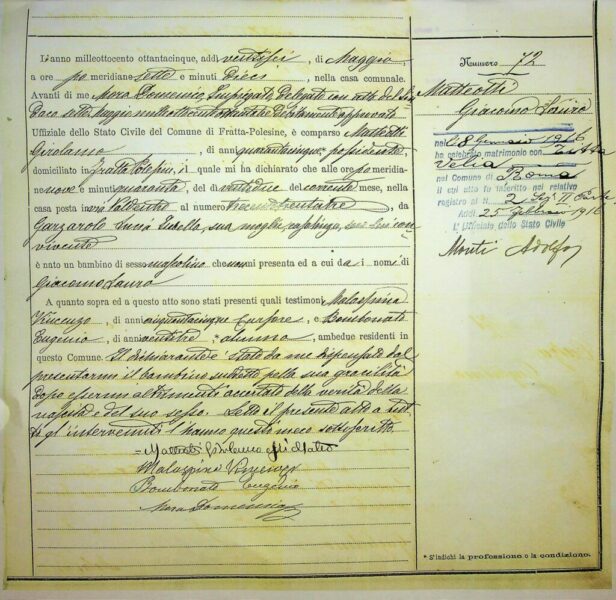 L'anno milleottocento ottantacinque, addì ventisei, di Maggio,
a ore po meridiane sette e minuti Dieci, nella casa comunale.
Avanti di me Mora Domenico, Impiegato Delegato con atto del Sin
daco sette Maggio milleottocento debitamente approvato
Uffiziale dello Stato Civile del Comune di Fratta-Polesine, è comparso Matteotti
Girolamo, di anni quarantacinque, possidente
domiciliato in Fratta Polesine, il quale mi ha dichiarato che alle ore po meridiane
nove e minuti quaranta, del ventidue del corrente mese, nella
casa posta in via Valdentro al numero trecentotrentatre, da
Garzarolo Lucia Isabella, sua moglie, casalinga, seco Lui con
vivente
è nato un bambino di sesso mascolino che non mi presenta ed a cui dà i nomi di
Giacomo Lauro
A quanto sopra ed a questo atto sono stati presenti quali testimoni Malaspina
Vincenzo, di anni cinquantacinque Cursore, e Bombonati
Eugenio, di anni ventitre, alunno, ambedue residenti in
questo Comune. Il dichiarante è stato da me dispensato dal
presentarmi il bambino suddetto per la sua gracilità
dopo essermi altrimenti accertato della verità della
nascita e del suo sesso. Letto il presente atto a tut
ti gl'intervenuti l'hanno questi meco sottoscritto.
Matteotti Girolamo
Malaspina Vincenzo
Bombonati Eugenio
Mora Domenico
Numero 72
Matteotti
Giacomo Lauro
nel 8 Gennaio 1916
ha celebrato matrimonio con Titta
Velia
nel Comune di Roma
il cui atto fu inserito nel relativo
registro al N. 2 II Parte
Addì 25 Febbraio 1916
L'Uffiziale dello Stato Civile
Monti Adolfo
* S'indichi la professione o la condizione.